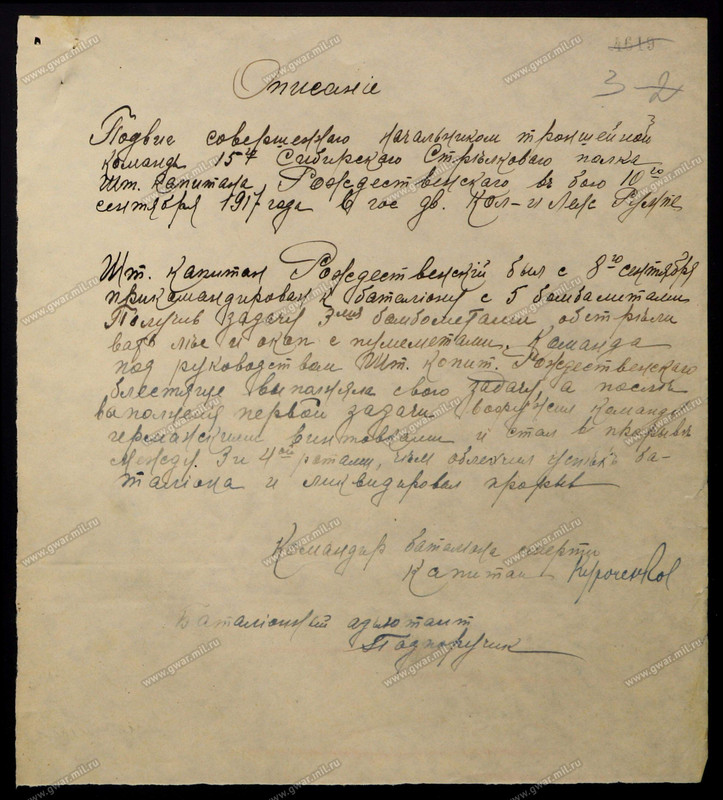 4619
3 2
Описаніе
Подвиг совершеннаго начальником траншейной
команды 15го Сибирскаго Стрѣлковаго полка
Шт. Капитана Рождественскаго въ бою 10го
сентября 1917 года гос дв.
Шт. Капитан Рождественскій был с 8го сентября
прикомандирован к баталіону с 5 бомбометами
Получив задачу 3мя бомбометами обстрѣли
вать и окоп с пулеметами. Команда
под руководством Шт. Капит. Рождественскаго
блестяще выполняла свою задачу, а послѣ
выполненія первой задачи вооружил команду
германскими винтовками и стал в прорывѣ
между 3 и 4ой ротами, чѣм облегчил успѣх ба-
таліона и ликвидировал прорыв
Командир баталіона смерти
Капитан
Баталіонный адъютант
Подпоручик
www.gwar.mil.ru